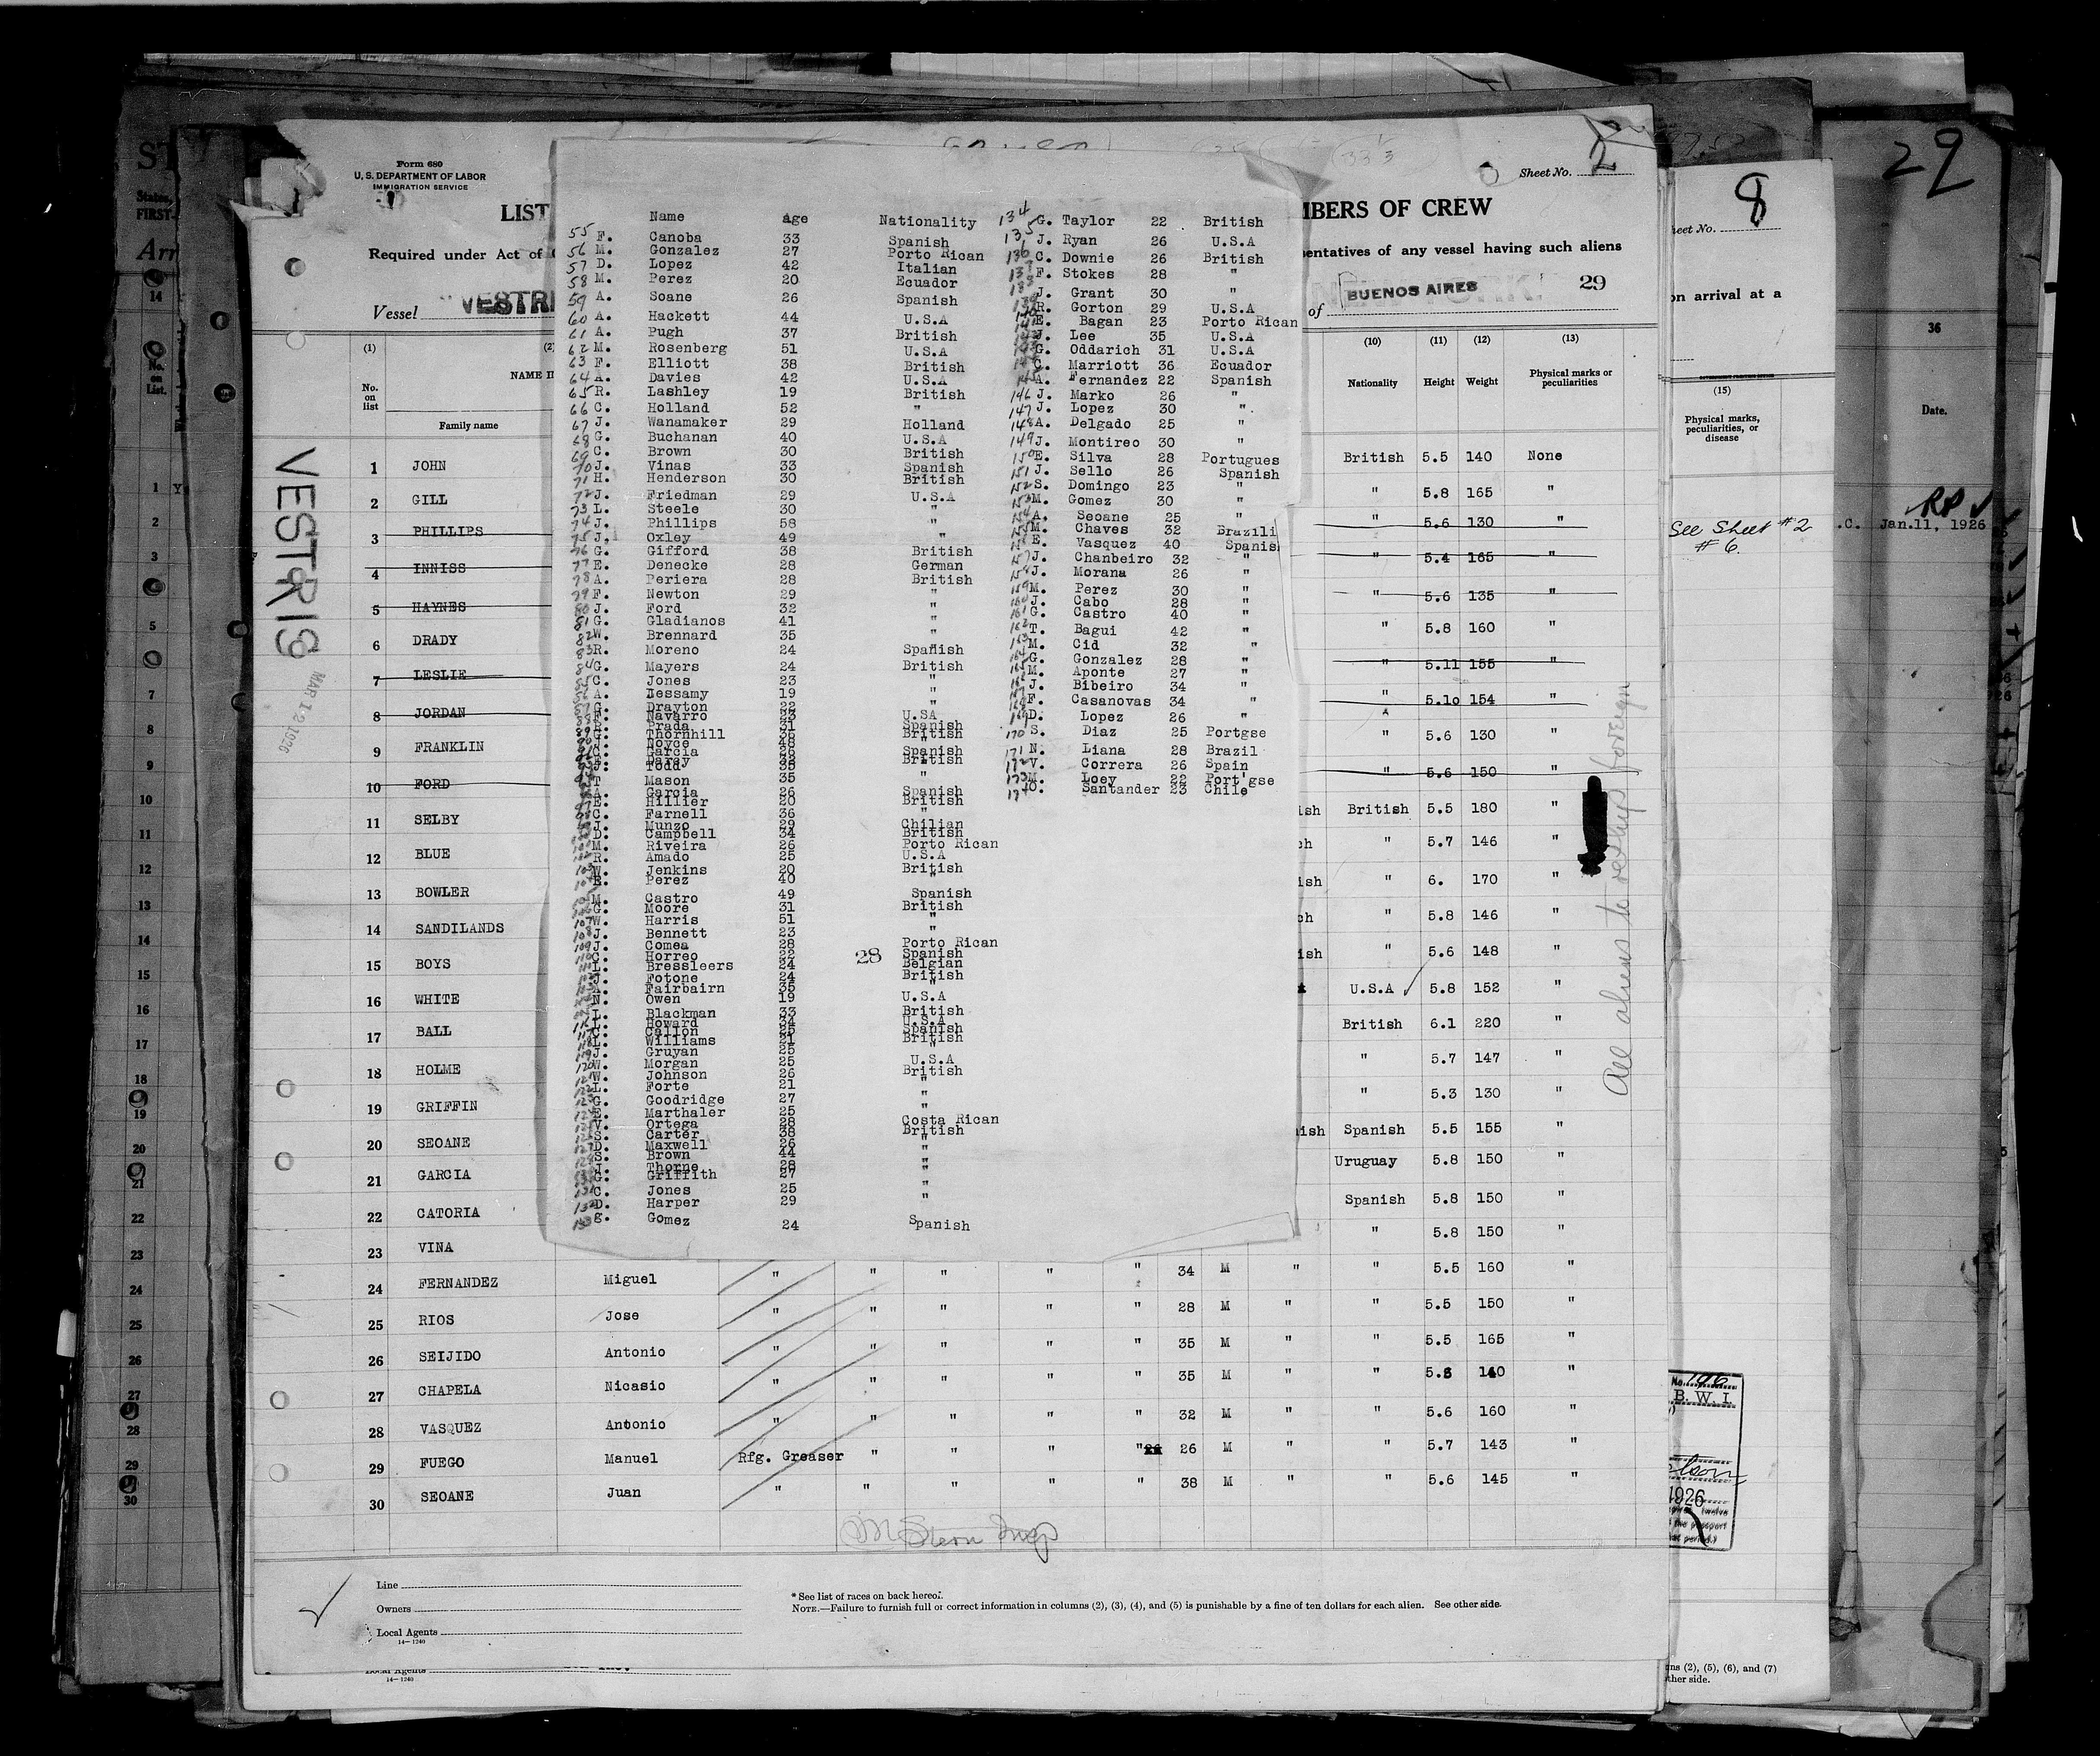 29
Sheet No. 2
8
Form 680
U. S. DEPARTMENT OF LABOR
IMMIGRATION SERVICE
LIST
MBERS OF CREW
Required under Act of
sentatives of any vessel having such aliens
on arrival at a
Vessel VESTRI
of BUENOS AIRES 29
36
Date.
(1) (10) (11) (12) (13)
(15)
No. on list
NAME I
Family name
Nationality Height Weight Physical marks or peculiarities
Physical marks, peculiarities, or disease
VESTRIS
MAR 12 1926
Name age Nationality
55 F. Canoba 33 Spanish
56 M. Gonzalez 27 Porto Rican
57 D. Lopez 42 Italian
58 M. Perez 20 Ecuador
59 A. Soane 26 Spanish
60 A. Hackett 44 U.S.A
61 A. Pugh 37 British
62 M. Rosenberg 51 U.S.A
63 F. Elliott 38 British
64 A. Davies 42 U.S.A
65 R. Lashley 19 British
66 C. Holland 52 "
67 J. Wanamaker 29 Holland
68 G. Buchanan 40 U.S.A
69 C. Brown 30 British
70 J. Vinas 33 Spanish
71 H. Henderson 30 British
72 J. Friedman 29 U.S.A
73 L. Steele 30 "
74 J. Phillips 58 "
75 J. Oxley 49 "
76 G. Gifford 38 British
77 E. Denecke 28 German
78 A. Periera 28 British
79 F. Newton 29 "
80 J. Ford 32 "
81 G. Gladianos 41 "
82 W. Brennard 35 "
83 R. Moreno 24 Spanish
84 G. Mayers 24 British
85 C. Jones 23 "
86 A. Lessamy 19 "
87 G. Drayton 22 "
88 F. Navarro 23 U.SA
Prada 31 Spanish
Thornhill 31 British
Noyce 48 "
Garcia 26 Spanish
Darcy 32 British
J. Todd 35
T Mason 35 "
A. Garcia 26 Spanish
97 E. Hillier 20 British
C. Farnell 36 "
J. Munzo 29 Chilian
D. Campbell 34 British
M. Riveira 26 Porto Rican
R. Amado 25 U.S.A
103 W. Jenkins 20 British
104 E. Perez 40 "
M. Castro 49 Spanish
G. Moore 31 British
107 W. Harris 51 "
108 J. Bennett 23 "
109 J. Comea 28 Porto Rican
110 C. Horreo 22 28 Spanish
L. Bressleers 24 Belgian
J. Fotone 24 British
A. Fairbairn 35 "
N. Owen 19 U.S.A
L. Blackman 33 British
L. Howard 34 U.S.A
C. Callon 25 Spanish
L. Williams 21 British
119 J. Gruyan 25 "
120 W. Morgan 25 U.S.A
121 W. Johnson 26 British
122 L. Forte 21 "
123 G. Goodridge 27 "
124 E. Marthaler 25 "
V. Ortega 28 Costa Rican
S. Carter 38 British
127 D. Maxwell 26 "
S. Brown 44 "
J. Thorne 28 "
G. Griffith 27 "
C. Jones 25 "
132 D. Harper 29 "
133 g. Gomez 24 Spanish
134 G. Taylor 22 British
135 J. Ryan 26 U.S.A
136 C. Downie 26 British
137 F. Stokes 28 "
138 J. Grant 30 "
139 R. Gorton 29 U.S.A
E. Bagan 23 Porto Rican
J. Lee 35 U.S.A
G. Oddarich 31 U.S.A
C. Marriott 36 Ecuador
145 A. Fernandez 22 Spanish
146 J. Marko 26 "
147 J. Lopez 30 "
148 A. Delgado 25 "
149 J. Montireo 30 "
150 E. Silva 28 Portugues
151 J. Sello 26 Spanish
152 S. Domingo 23 "
153 M. Gomez 30 "
154 A. Seoane 25 "
M. Chaves 32 Brazili
E. Vasquez 40 Spanis
J. Chanbeiro 32 "
J. Morana 26 "
159 M. Perez 30 "
160 J. Cabo 28 "
161 G. Castro 40 "
162 T. Bagui 42 "
163 M. Cid 32 "
164 G. Gonzalez 28 "
M. Aponte 27 "
J. Bibeiro 34 "
F. Casanovas 34 "
169 D. Lopez 26 "
170 S. Diaz 25 Portgse
171 N. Liana 28 Brazil
172 V. Correra 26 Spain
173 M. Loey 22 Port'gse
174 O. Santander 23 Chile
1 JOHN British 5.5 140 None
2 GILL " 5.8 165 "
3 PHILLIPS " 5.6 130 "
4 INNISS " 5.4 165 "
5 HAYNES " 5.6 135 "
6 DRADY " 5.8 160 "
7 LESLIE " 5.11 155 "
8 JORDAN " 5.10 154 "
9 FRANKLIN " 5.6 130 "
10 FORD " 5.6 150 "
11 SELBY ish British 5.5 180 "
12 BLUE ch " 5.7 146 "
13 BOWLER ish " 6. 170 "
14 SANDILANDS ch " 5.8 146 "
15 BOYS ish " 5.6 148 "
16 WHITE U.S.A 5.8 152 "
17 BALL British 6.1 220 "
18 HOLME " 5.7 147 "
19 GRIFFIN " 5.3 130 "
20 SEOANE ish Spanish 5.5 155 "
21 GARCIA Uruguay 5.8 150 "
22 CATORIA Spanish 5.8 150 "
23 VINA " 5.8 150 "
24 FERNANDEZ Miguel " " " " " 34 M " " 5.5 160 "
25 RIOS Jose " " " " " 28 M " " 5.5 150 "
26 SEIJIDO Antonio " " " " " 35 M " " 5.5 165 "
27 CHAPELA Nicasio " " " " " 35 M " " 5.6 140 "
28 VASQUEZ Antonio " " " " " 32 M " " 5.6 160 "
29 FUEGO Manuel Rfg. Greaser " " " " 26 M " " 5.7 143 "
30 SEOANE Juan " " " " " 38 M " " 5.6 145 "
All aliens to reship foreign
M Stern Insp
Line
Owners
Local Agents
14—1240
* See list of races on back hereof.
NOTE.—Failure to furnish full or correct information in columns (2), (3), (4), and (5) is punishable by a fine of ten dollars for each alien. See other side.
Local Agents
14—1240
See Sheet #2
#6.
.C. Jan. 11, 1926
No. 196
B. W. I.
1926
ns (2), (5), (6), and (7)
ther side.